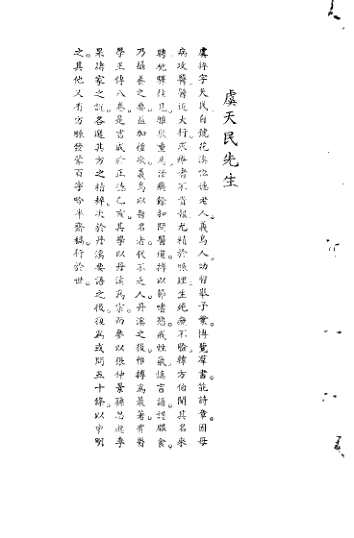 虞天民先生
虞摶字天民自號花溪恒德老人。義烏人。幼習舉子業。博覽羣書。能詩章。因母
病攻醫。醫近大行。求療者不責報。尤精於脈理。生死無不驗。韓方伯聞其名。來
聘。馳驛往見。雅敬重焉。治療餘。扣問醫道。摶以節嗜慾。戒性氣。慎言語。謹服食。
乃攝養之要。益加禮敬。義烏以醫名者。代不乏人。丹溪之後。惟摶為最著。有醫
學正傳八卷。是書成於正德乙亥。其學以丹溪為宗。而參以張仲景孫思邈李
杲諸家之說。各選其方之精粹。次於丹溪要語之後。後為或問五十條。以申明
之。其他又有方脈發蒙百字吟半齋稿行於世。